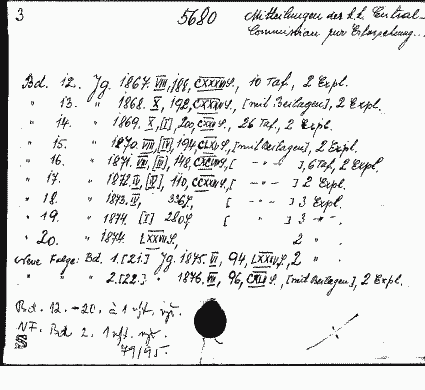 3 5680 Mitteilungen der k.k. Central-
Commission zur Erforschung...
Bd. 12. Jg. 1867. VIII, 188, CXXXIIS., 10 Taf., 2 Expl.
" 13. " 1868. X, 192, CXXXIIS., [mit Beilagen], 2 Expl.
" 14. " 1869. X, [I], 200, S., 26 Taf., 2 Expl.
" 15. " 1870. VIII, [IV], 194, S., [mit Beilagen], 2 Expl.
" 16. " 1871. 148, S, [ - " - ], 6 Taf., 2 Expl.
" 17. " 1872. [V], 110, S, [ - " - ] 2 Expl.
" 18. " 1873. IV, 336S, [ - " - ] 3 Expl.
" 19. " 1874. [I] 280S [ " ] 3 - " -.
" 20. " 1874. LXXVIIIS, 2 " .
Neue Folge: Bd. 1.[21.] Jg. 1875. VI, 94, S, 2 " .
" " 2.[22.] " 1876. 96, S., [mit Beilagen], 2 Expl.
Bd. 12.-20. à 1
NF. Bd. 2. 1
79/95.